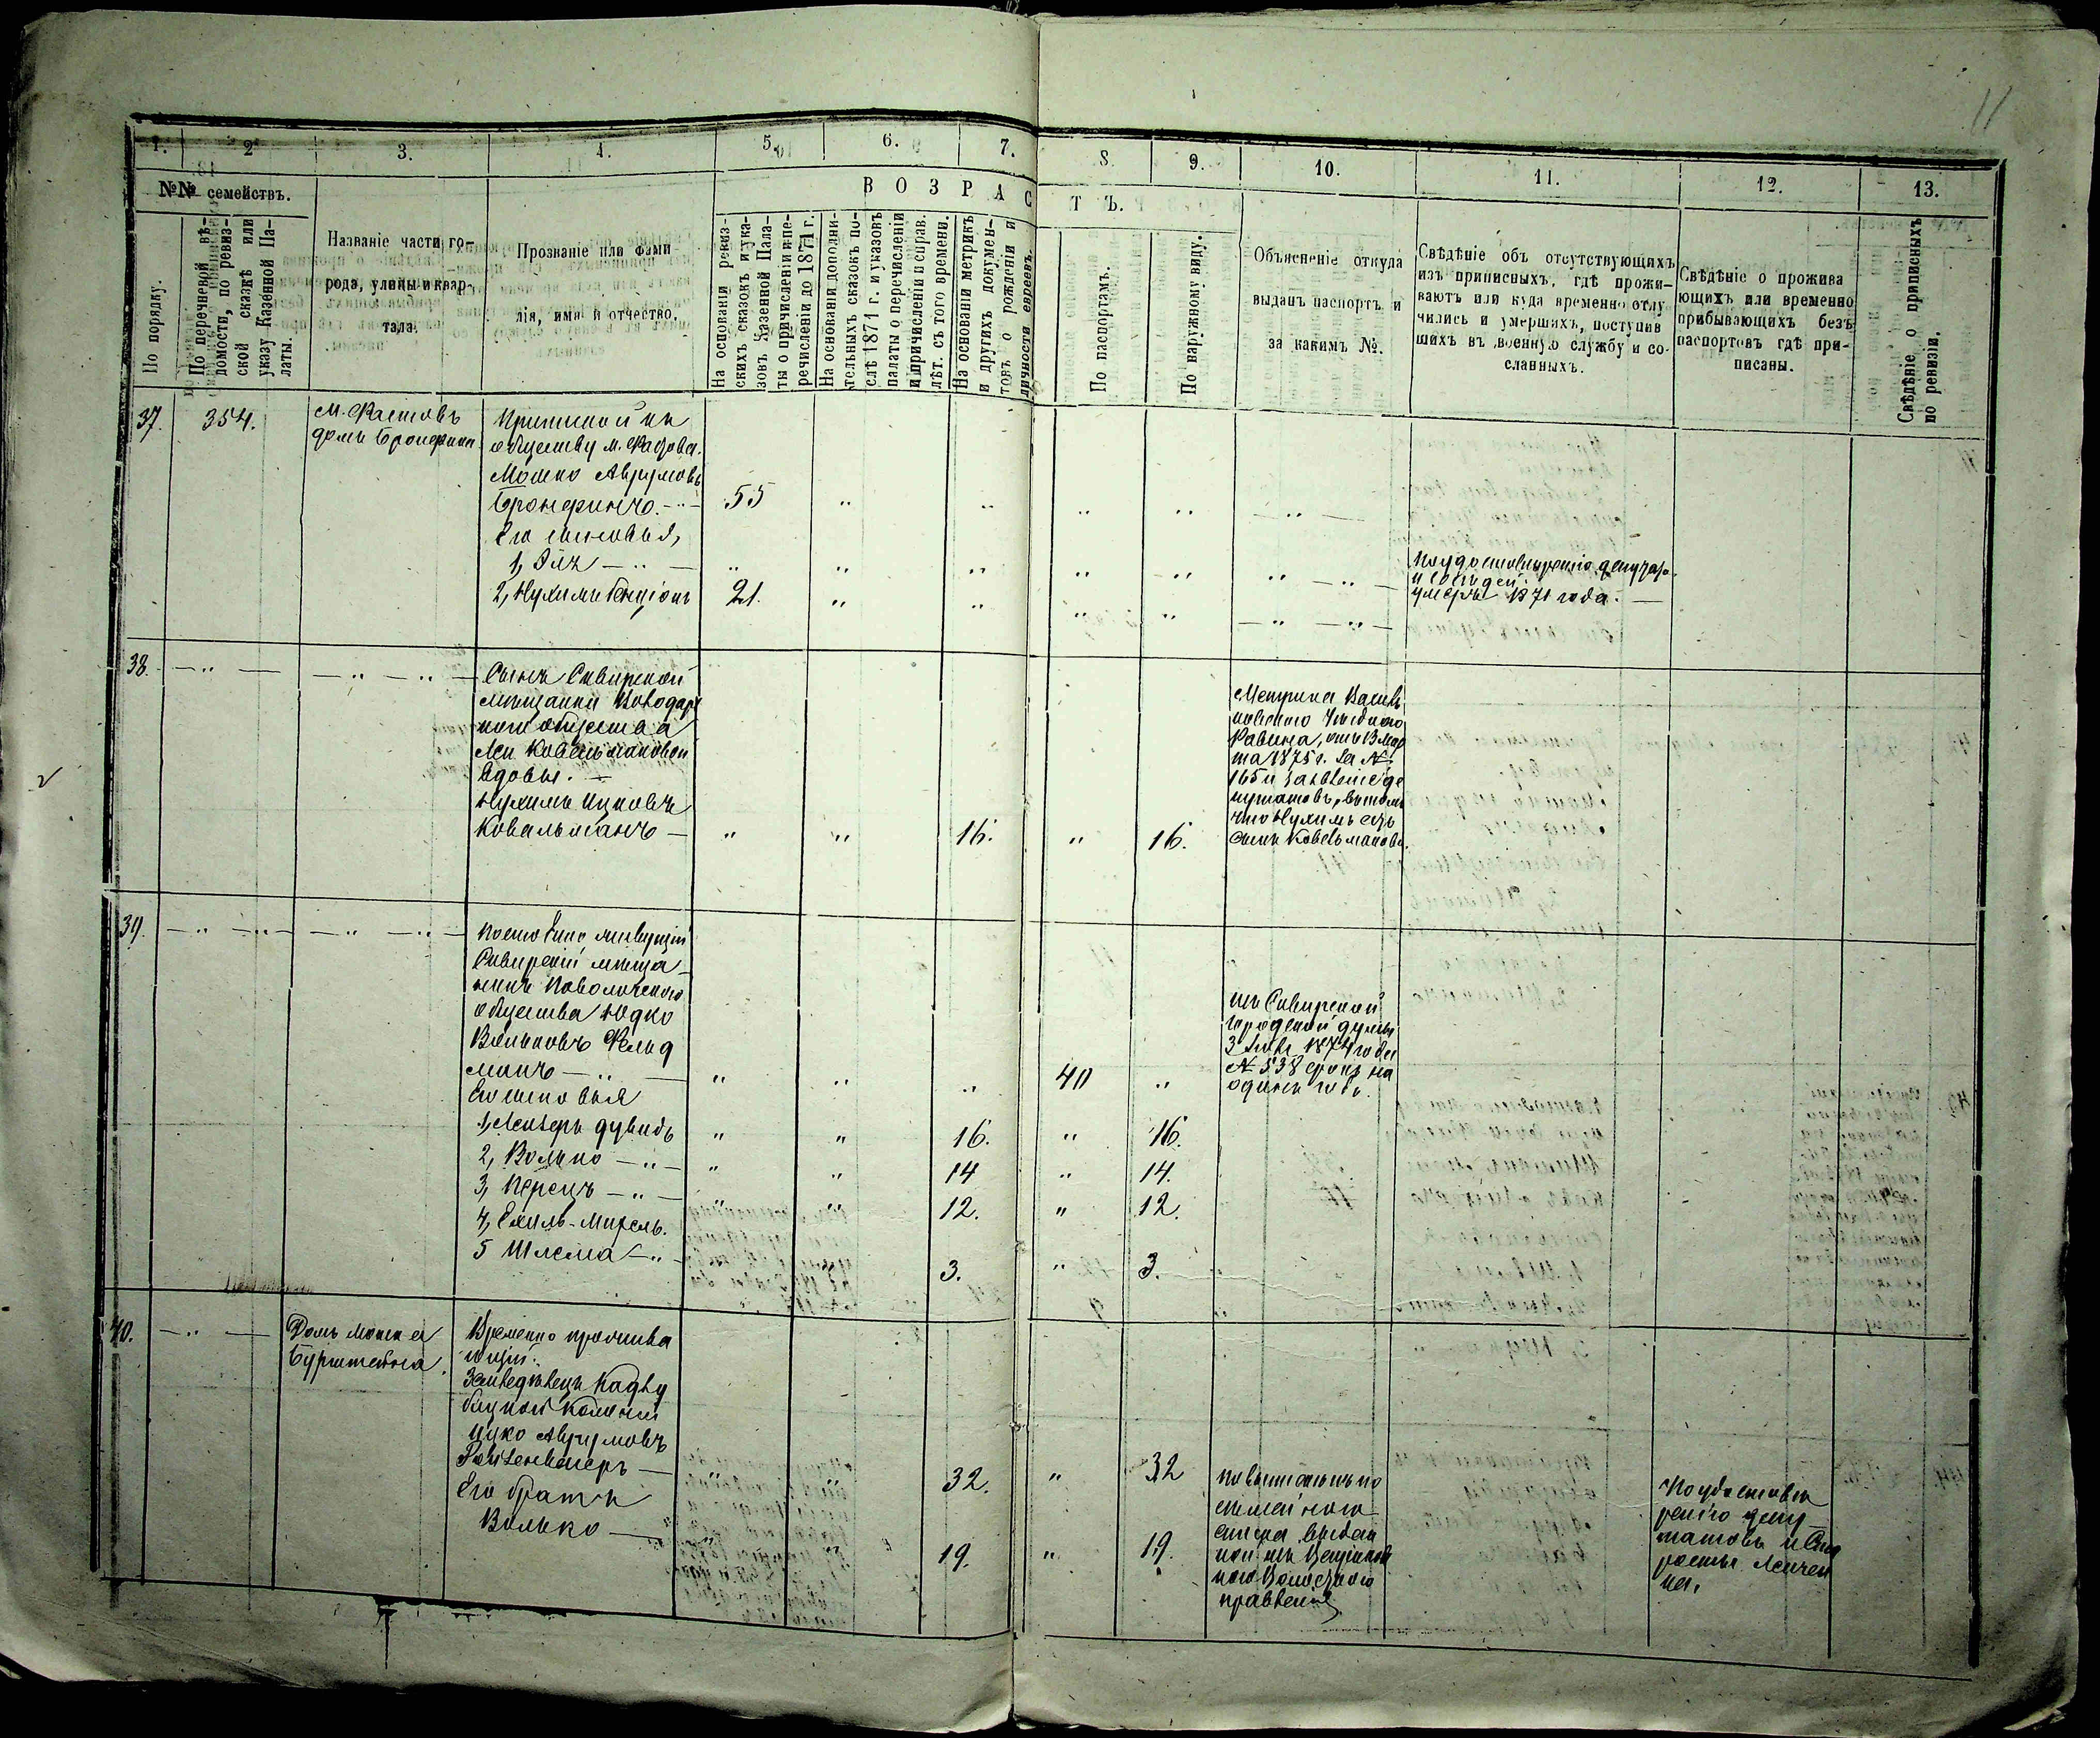 11
1. 2 3. 4. 5. 6. 7. 8. 9. 10. 11. 12. 13.
№№ семействъ.
По порядку.
По перечневой вѣ-
домости, по ревиз-
ской сказкѣ или
указу Казенной Па-
латы.
Названіе части го-
рода, улицы и квар-
тала.
Прозваніе или фами-
лія, имя и отчество.
ВОЗРАСТЪ.
На основаніи ревиз-
скихъ сказокъ и ука-
зовъ Казенной Пала-
ты о причисленіи и пе-
речисленіи до 1871 г.
На основаніи дополни-
тельныхъ сказокъ по-
слѣ 1871 г. и указовъ
палаты о перечисленіи
и причисленіи и справ.
лѣт. съ того времени.
На основаніи метрикъ
и другихъ докумен-
товъ о рожденіи и
личности евреевъ.
По паспортамъ.
По наружному виду.
Объясненіе откуда
выданъ паспортъ и
за какимъ №.
Свѣдѣніе объ отсутствующихъ
изъ приписныхъ, гдѣ прожи-
ваютъ или куда временно отлу
чились и умершихъ, поступив
шихъ въ военную службу и со-
сланныхъ.
Свѣдѣніе о прожива
ющихъ или временно
прибывающихъ безъ
паспортовъ гдѣ при-
писаны.
Свѣдѣніе о приписныхъ
по ревизіи.
37. 354.
м. Фастовъ
домъ Бронфина
Приписной къ
обществу м. Фастова.
Мошко Аврумовъ
Бронфинъ. 55
Его сыновья,
1, Эля
2, Нухимъ Бенціонъ 21.
По удостовѣренію депутато
и сосѣдей
умеръ 1871 года.
38.
Сынъ Сквирской
мѣщанки Володар
ского общества
Леи Ковельмановой
вдовы.
Нухимъ Ицковъ
Ковальманъ 16. 16.
Метрика Василь
ковского
Равина, отъ 13 Мар
та 1875 г. за №
165 и заявленіе де
путатовъ, въ томъ
что Нухимъ есть
сынъ Ковельмановой.
39.
Постоянно живущій
Сквирскій мѣща-
нинъ Паволочского
общества Юдко
Вольковъ Фельд
манъ 40
Его сыновья
1, Лейзеръ Дувидъ 16. 16.
2, Волько 14 14.
3, Перецъ 12. 12.
4, Ехиль-Мирель.
5 Шлема 3. 3.
изъ Сквирской
городской думы
3 1874 года
№ 538 срокъ на
одинъ годъ.
40.
Домъ Мошка
Бурштейна.
Временно прожива
ющій.
Земледѣлецъ Кадлу
бицкой Колоніи
Ицко Аврумовъ
Ройзенвасеръ 32. 32
Его братъ
Волько 19. 19.
по выпискѣ изъ по
семейного
списка выдан
ной изъ
кого Волостного
правленія
По удостовѣ
ренію депу
татовъ и Ста
росты